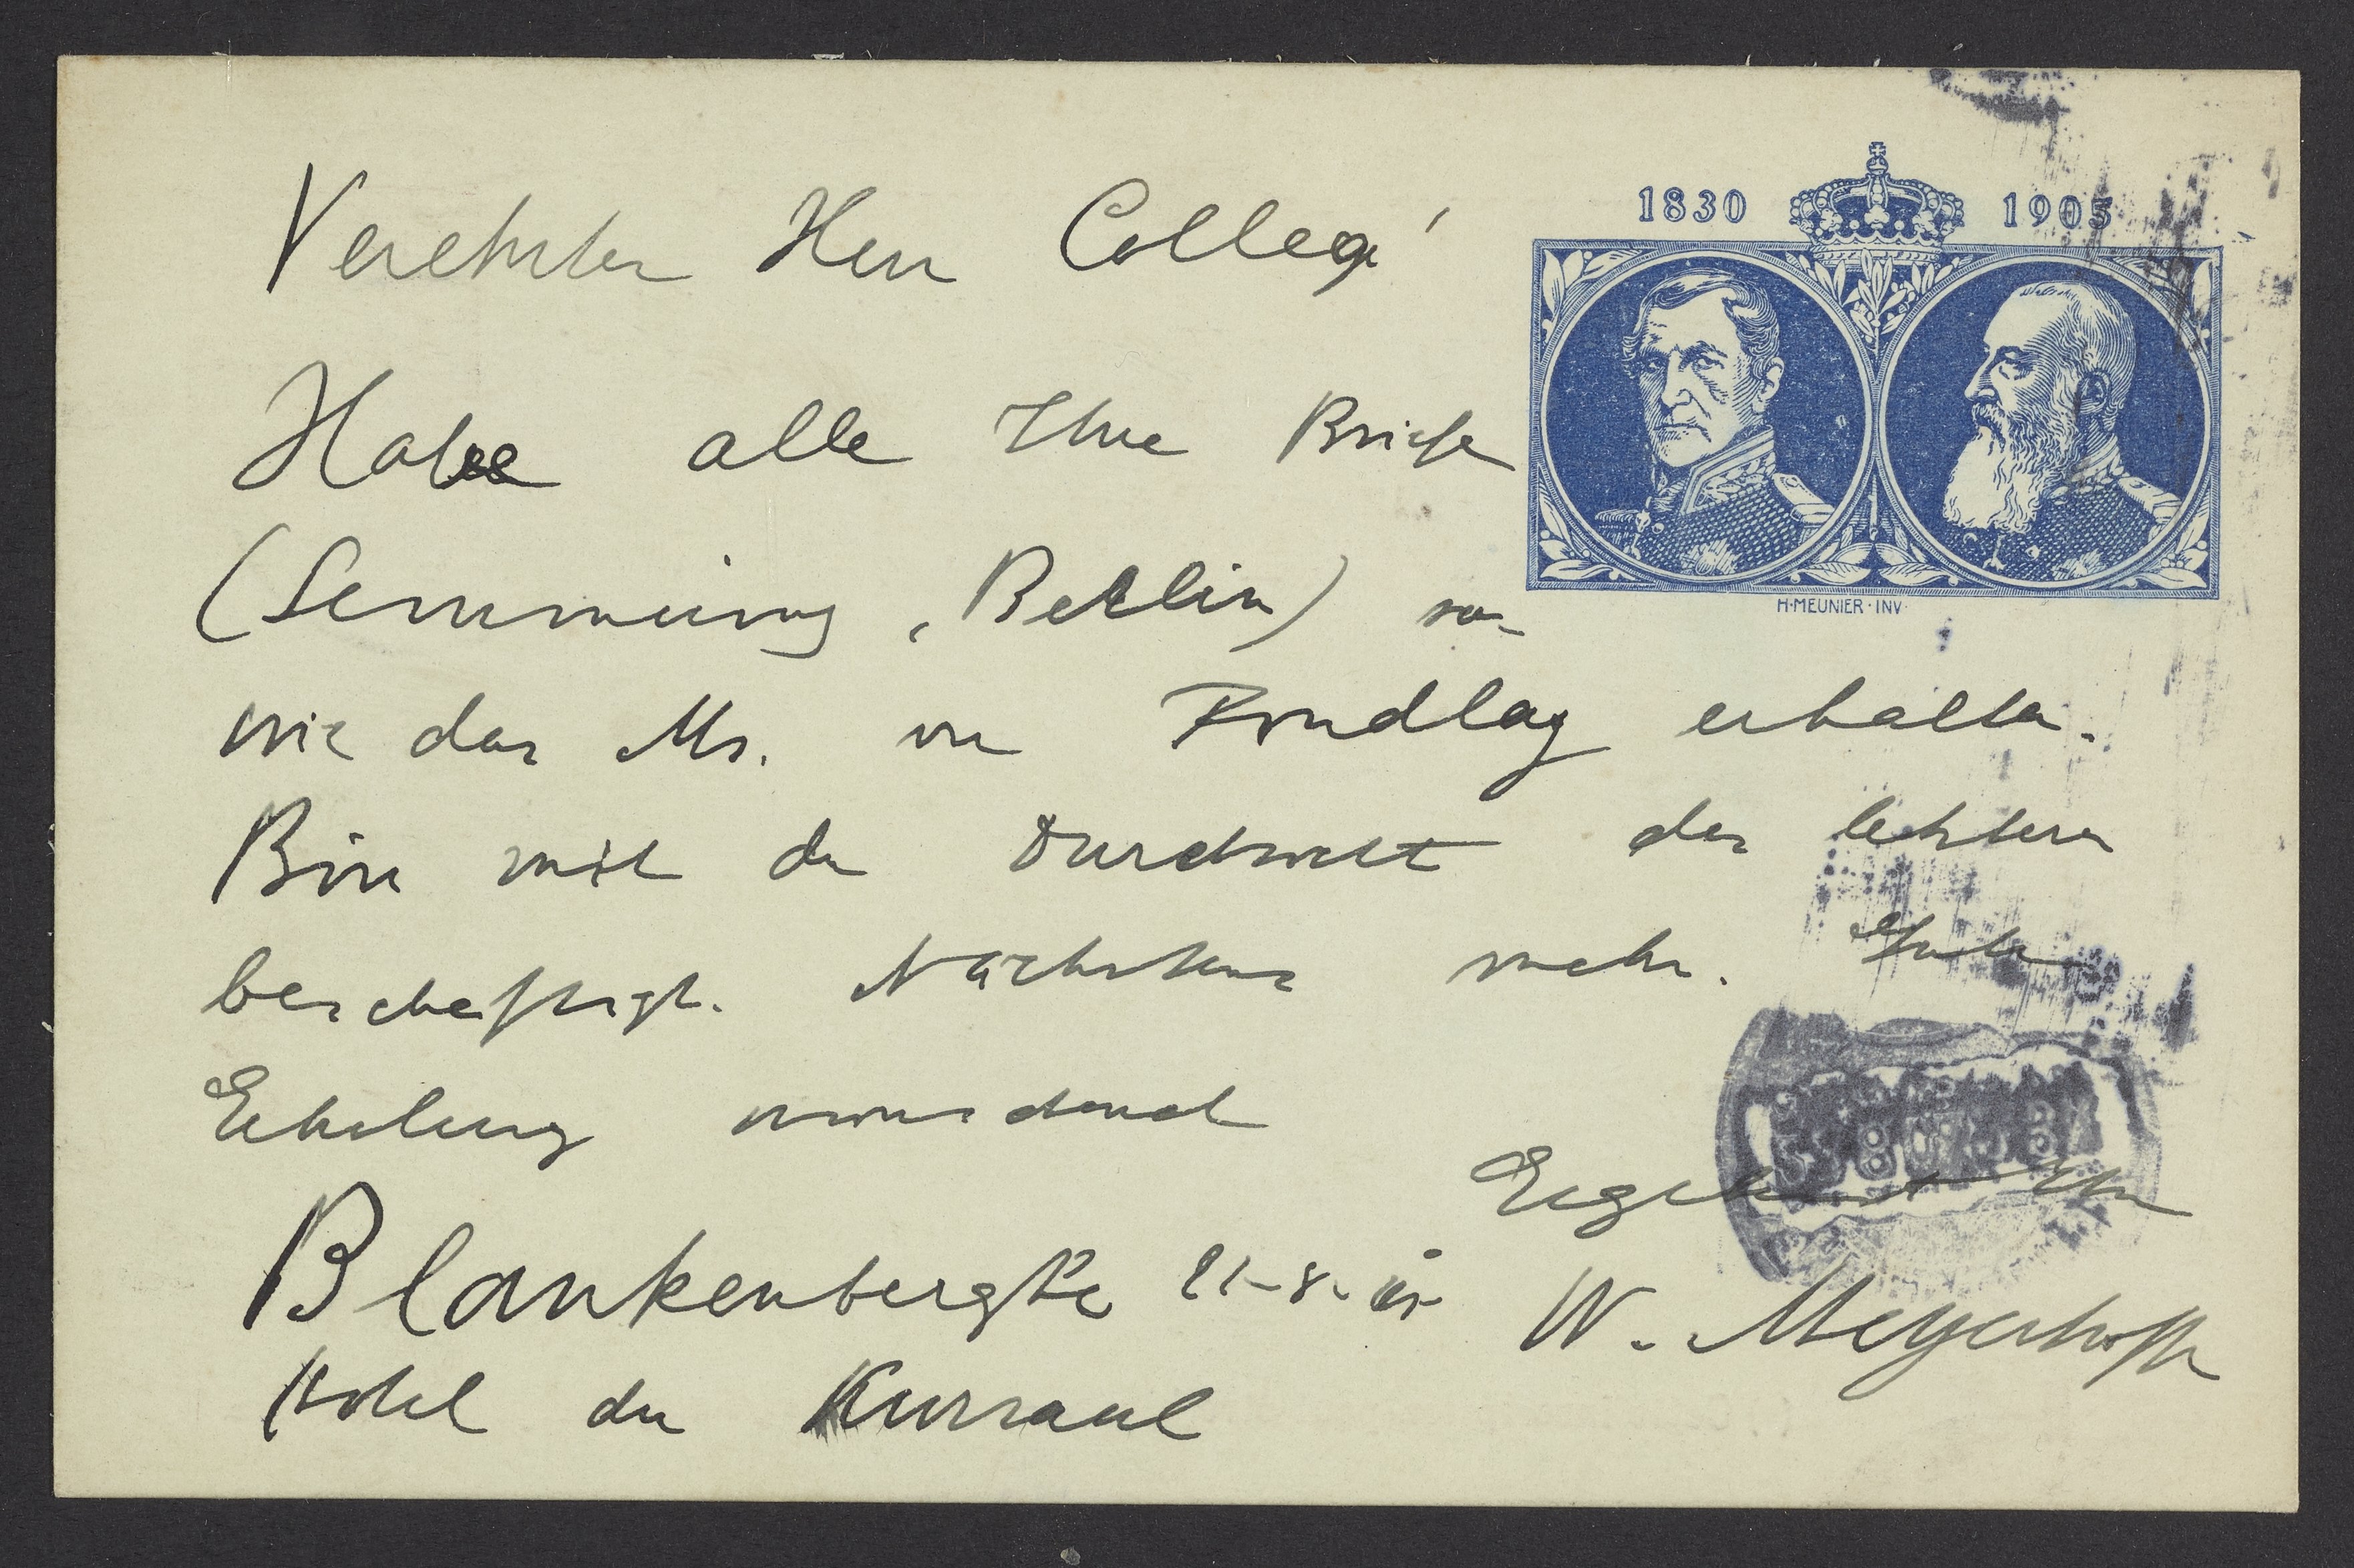 Verehrter Herr College!
1830 1905
Habe alle Ihre Briefe
(Semmering, Berlin) so-
H·MEUNIER·INV·
wie das Ms. von Rondlag erhalten.
Bin mit der Durchsicht des letztern
beschäftigt. Nächstens mehr. Gute
Erholung wünschend
Ergebenst Ihr
Blankenberghe 21-8-05
W. Meyerhoffer
Hotel du Kursaal